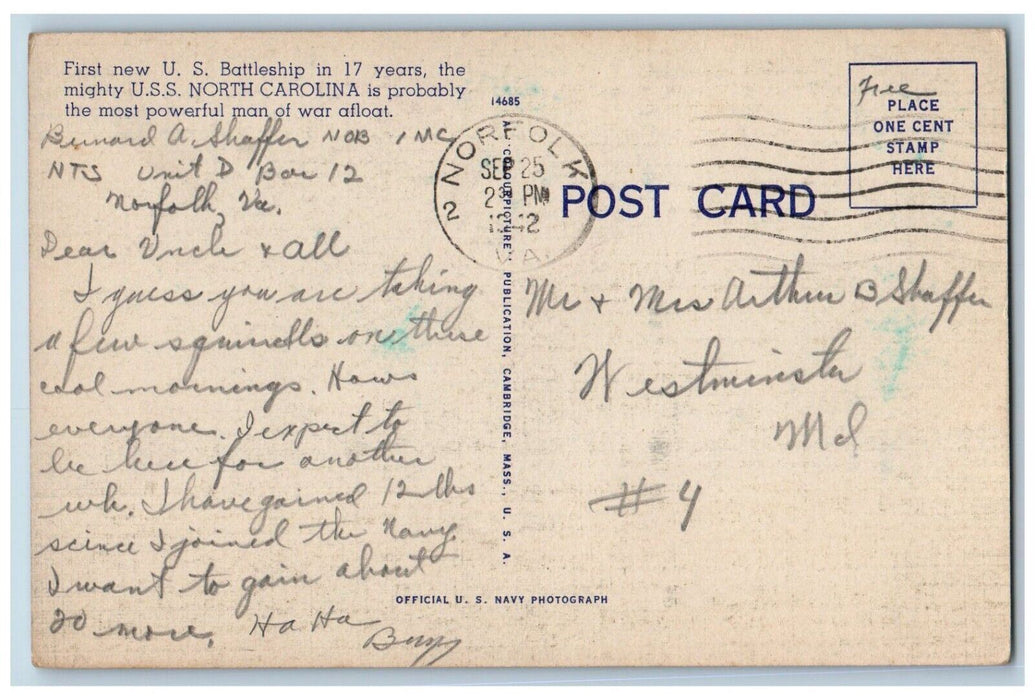 First new U. S. Battleship in 17 years, the
mighty U.S.S. NORTH CAROLINA is probably
the most powerful man of war afloat.
Bernard A. Shaffer NOB
NTS Unit D Bar 12
Norfolk, Va.
Dear Uncle & all
I guess you are taking
a few squirrells on these
cool mornings. Hows
everyone. I expect to
be here for another
wk. I have gained 12 lbs
scince I joined the Navy.
I want to gain about
20 more. Ha Ha
14685
NORFOLK
2
SEP 25
2 30 PM
1942
VA.
A "COLOURPICTURE" PUBLICATION, CAMBRIDGE, MASS., U. S. A.
POST CARD
Free
PLACE
ONE CENT
STAMP
HERE
Mr + Mrs Arthur B Shaffer
Westminster
Md
#4
OFFICIAL U. S. NAVY PHOTOGRAPH